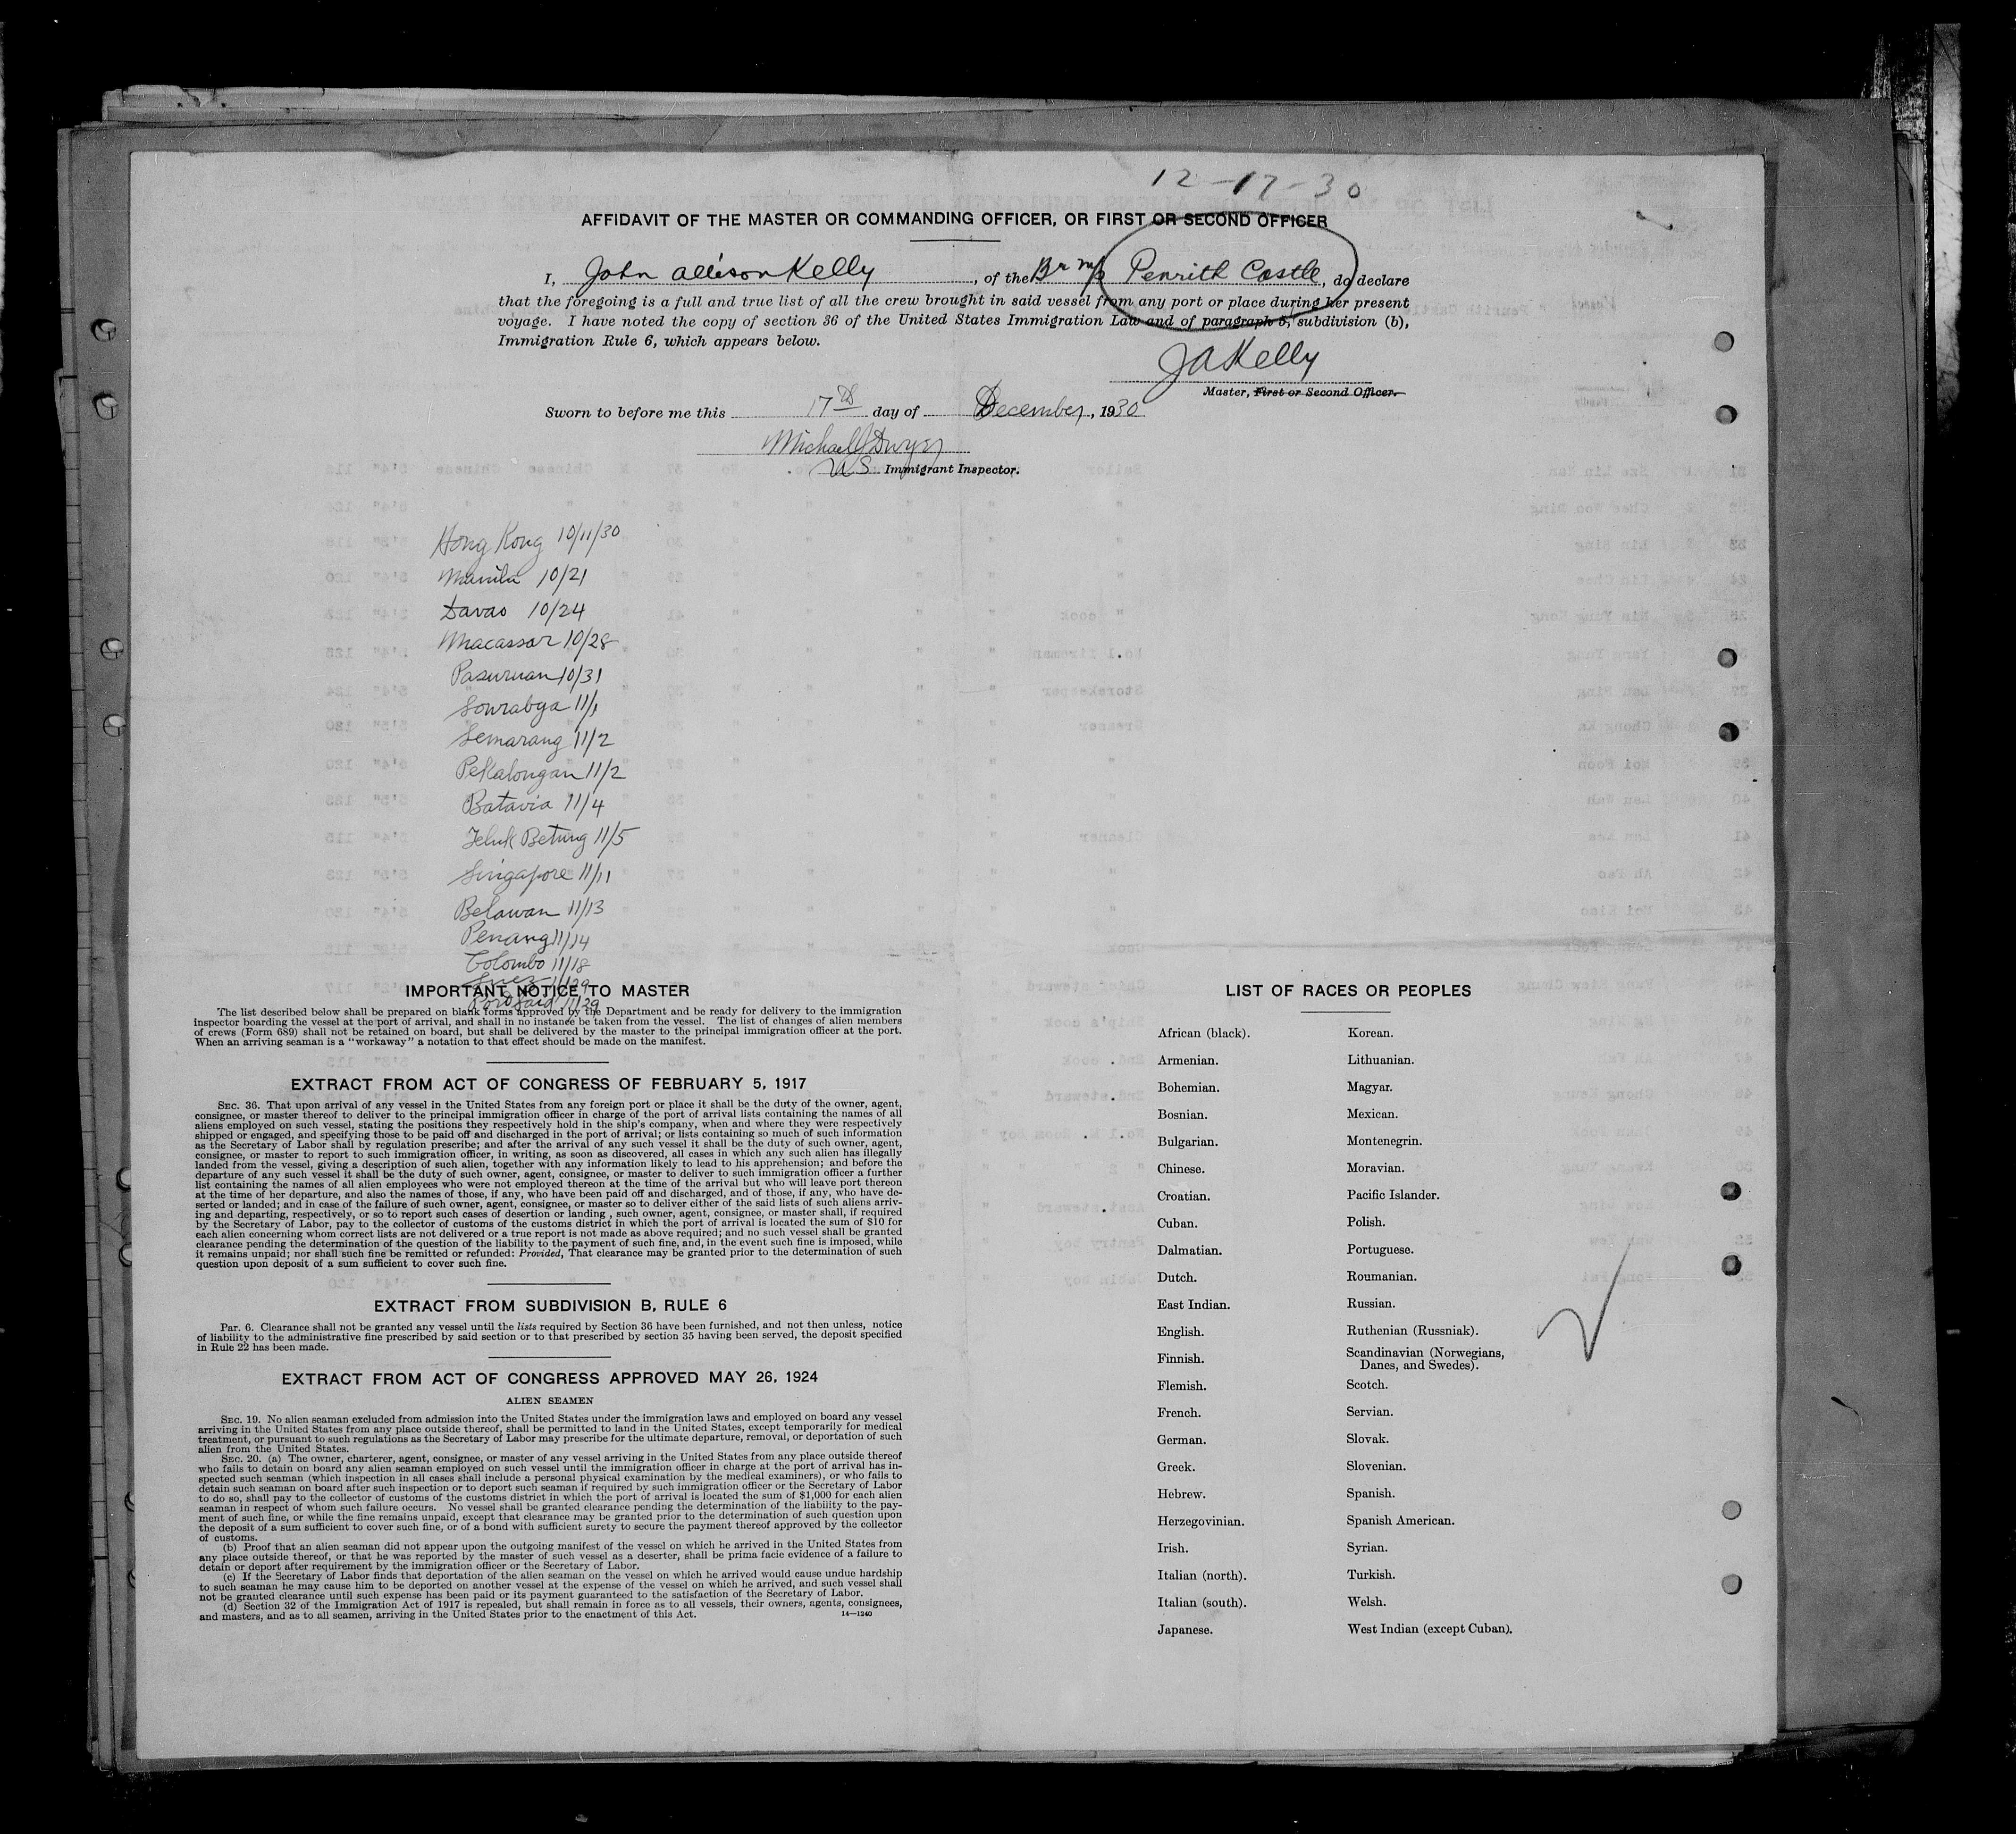 12-17-30
AFFIDAVIT OF THE MASTER OR COMMANDING OFFICER, OR FIRST OR SECOND OFFICER
I, John Allison Kelly, of the Br m/s Penrith Castle, do declare
that the foregoing is a full and true list of all the crew brought in said vessel from any port or place during her present
voyage. I have noted the copy of section 36 of the United States Immigration Law and of paragraph 6, subdivision (b),
Immigration Rule 6, which appears below.
JAKelly
Master, First or Second Officer.
Sworn to before me this 17th day of December, 1930
Michael Dwyer
US Immigrant Inspector.
Hong Kong 10/11/30
Manila 10/21
Davao 10/24
Macassar 10/28
Pasuruan 10/31
Sourabya 11/1
Semarang 11/2
Pekalongan 11/2
Batavia 11/4
Teluk Betung 11/5
Singapore 11/11
Belawan 11/13
Penang 11/14
Colombo 11/18
Suez 11/29
Port Said 11/29
IMPORTANT NOTICE TO MASTER
The list described below shall be prepared on blank forms approved by the Department and be ready for delivery to the immigration
inspector boarding the vessel at the port of arrival, and shall in no instance be taken from the vessel. The list of changes of alien members
of crews (Form 689) shall not be retained on board, but shall be delivered by the master to the principal immigration officer at the port.
When an arriving seaman is a "workaway" a notation to that effect should be made on the manifest.
EXTRACT FROM ACT OF CONGRESS OF FEBRUARY 5, 1917
SEC. 36. That upon arrival of any vessel in the United States from any foreign port or place it shall be the duty of the owner, agent,
consignee, or master thereof to deliver to the principal immigration officer in charge of the port of arrival lists containing the names of all
aliens employed on such vessel, stating the positions they respectively hold in the ship's company, when and where they were respectively
shipped or engaged, and specifying those to be paid off and discharged in the port of arrival; or lists containing so much of such information
as the Secretary of Labor shall by regulation prescribe; and after the arrival of any such vessel it shall be the duty of such owner, agent,
consignee, or master to report to such immigration officer, in writing, as soon as discovered, all cases in which any such alien has illegally
landed from the vessel, giving a description of such alien, together with any information likely to lead to his apprehension; and before the
departure of any such vessel it shall be the duty of such owner, agent, consignee, or master to deliver to such immigration officer a further
list containing the names of all alien employees who were not employed thereon at the time of the arrival but who will leave port thereon
at the time of her departure, and also the names of those, if any, who have been paid off and discharged, and of those, if any, who have de-
serted or landed; and in case of the failure of such owner, agent, consignee, or master so to deliver either of the said lists of such aliens arriv-
ing and departing, respectively, or so to report such cases of desertion or landing , such owner, agent, consignee, or master shall, if required
by the Secretary of Labor, pay to the collector of customs of the customs district in which the port of arrival is located the sum of $10 for
each alien concerning whom correct lists are not delivered or a true report is not made as above required; and no such vessel shall be granted
clearance pending the determination of the question of the liability to the payment of such fine, and, in the event such fine is imposed, while
it remains unpaid; nor shall such fine be remitted or refunded: Provided, That clearance may be granted prior to the determination of such
question upon deposit of a sum sufficient to cover such fine.
EXTRACT FROM SUBDIVISION B, RULE 6
Par. 6. Clearance shall not be granted any vessel until the lists required by Section 36 have been furnished, and not then unless, notice
of liability to the administrative fine prescribed by said section or to that prescribed by section 35 having been served, the deposit specified
in Rule 22 has been made.
EXTRACT FROM ACT OF CONGRESS APPROVED MAY 26, 1924
ALIEN SEAMEN
SEC. 19. No alien seaman excluded from admission into the United States under the immigration laws and employed on board any vessel
arriving in the United States from any place outside thereof, shall be permitted to land in the United States, except temporarily for medical
treatment, or pursuant to such regulations as the Secretary of Labor may prescribe for the ultimate departure, removal, or deportation of such
alien from the United States.
SEC. 20. (a) The owner, charterer, agent, consignee, or master of any vessel arriving in the United States from any place outside thereof
who fails to detain on board any alien seaman employed on such vessel until the immigration officer in charge at the port of arrival has in-
spected such seaman (which inspection in all cases shall include a personal physical examination by the medical examiners), or who fails to
detain such seaman on board after such inspection or to deport such seaman if required by such immigration officer or the Secretary of Labor
to do so, shall pay to the collector of customs of the customs district in which the port of arrival is located the sum of $1,000 for each alien
seaman in respect of whom such failure occurs. No vessel shall be granted clearance pending the determination of the liability to the pay-
ment of such fine, or while the fine remains unpaid, except that clearance may be granted prior to the determination of such question upon
the deposit of a sum sufficient to cover such fine, or of a bond with sufficient surety to secure the payment thereof approved by the collector
of customs.
(b) Proof that an alien seaman did not appear upon the outgoing manifest of the vessel on which he arrived in the United States from
any place outside thereof, or that he was reported by the master of such vessel as a deserter, shall be prima facie evidence of a failure to
detain or deport after requirement by the immigration officer or the Secretary of Labor.
(c) If the Secretary of Labor finds that deportation of the alien seaman on the vessel on which he arrived would cause undue hardship
to such seaman he may cause him to be deported on another vessel at the expense of the vessel on which he arrived, and such vessel shall
not be granted clearance until such expense has been paid or its payment guaranteed to the satisfaction of the Secretary of Labor.
(d) Section 32 of the Immigration Act of 1917 is repealed, but shall remain in force as to all vessels, their owners, agents, consignees,
and masters, and as to all seamen, arriving in the United States prior to the enactment of this Act.
14—1240
LIST OF RACES OR PEOPLES
African (black).
Armenian.
Bohemian.
Bosnian.
Bulgarian.
Chinese.
Croatian.
Cuban.
Dalmatian.
Dutch.
East Indian.
English.
Finnish.
Flemish.
French.
German.
Greek.
Hebrew.
Herzegovinian.
Irish.
Italian (north).
Italian (south).
Japanese.
Korean.
Lithuanian.
Magyar.
Mexican.
Montenegrin.
Moravian.
Pacific Islander.
Polish.
Portuguese.
Roumanian.
Russian.
Ruthenian (Russniak).
Scandinavian (Norwegians,
Danes, and Swedes).
Scotch.
Servian.
Slovak.
Slovenian.
Spanish.
Spanish American.
Syrian.
Turkish.
Welsh.
West Indian (except Cuban).